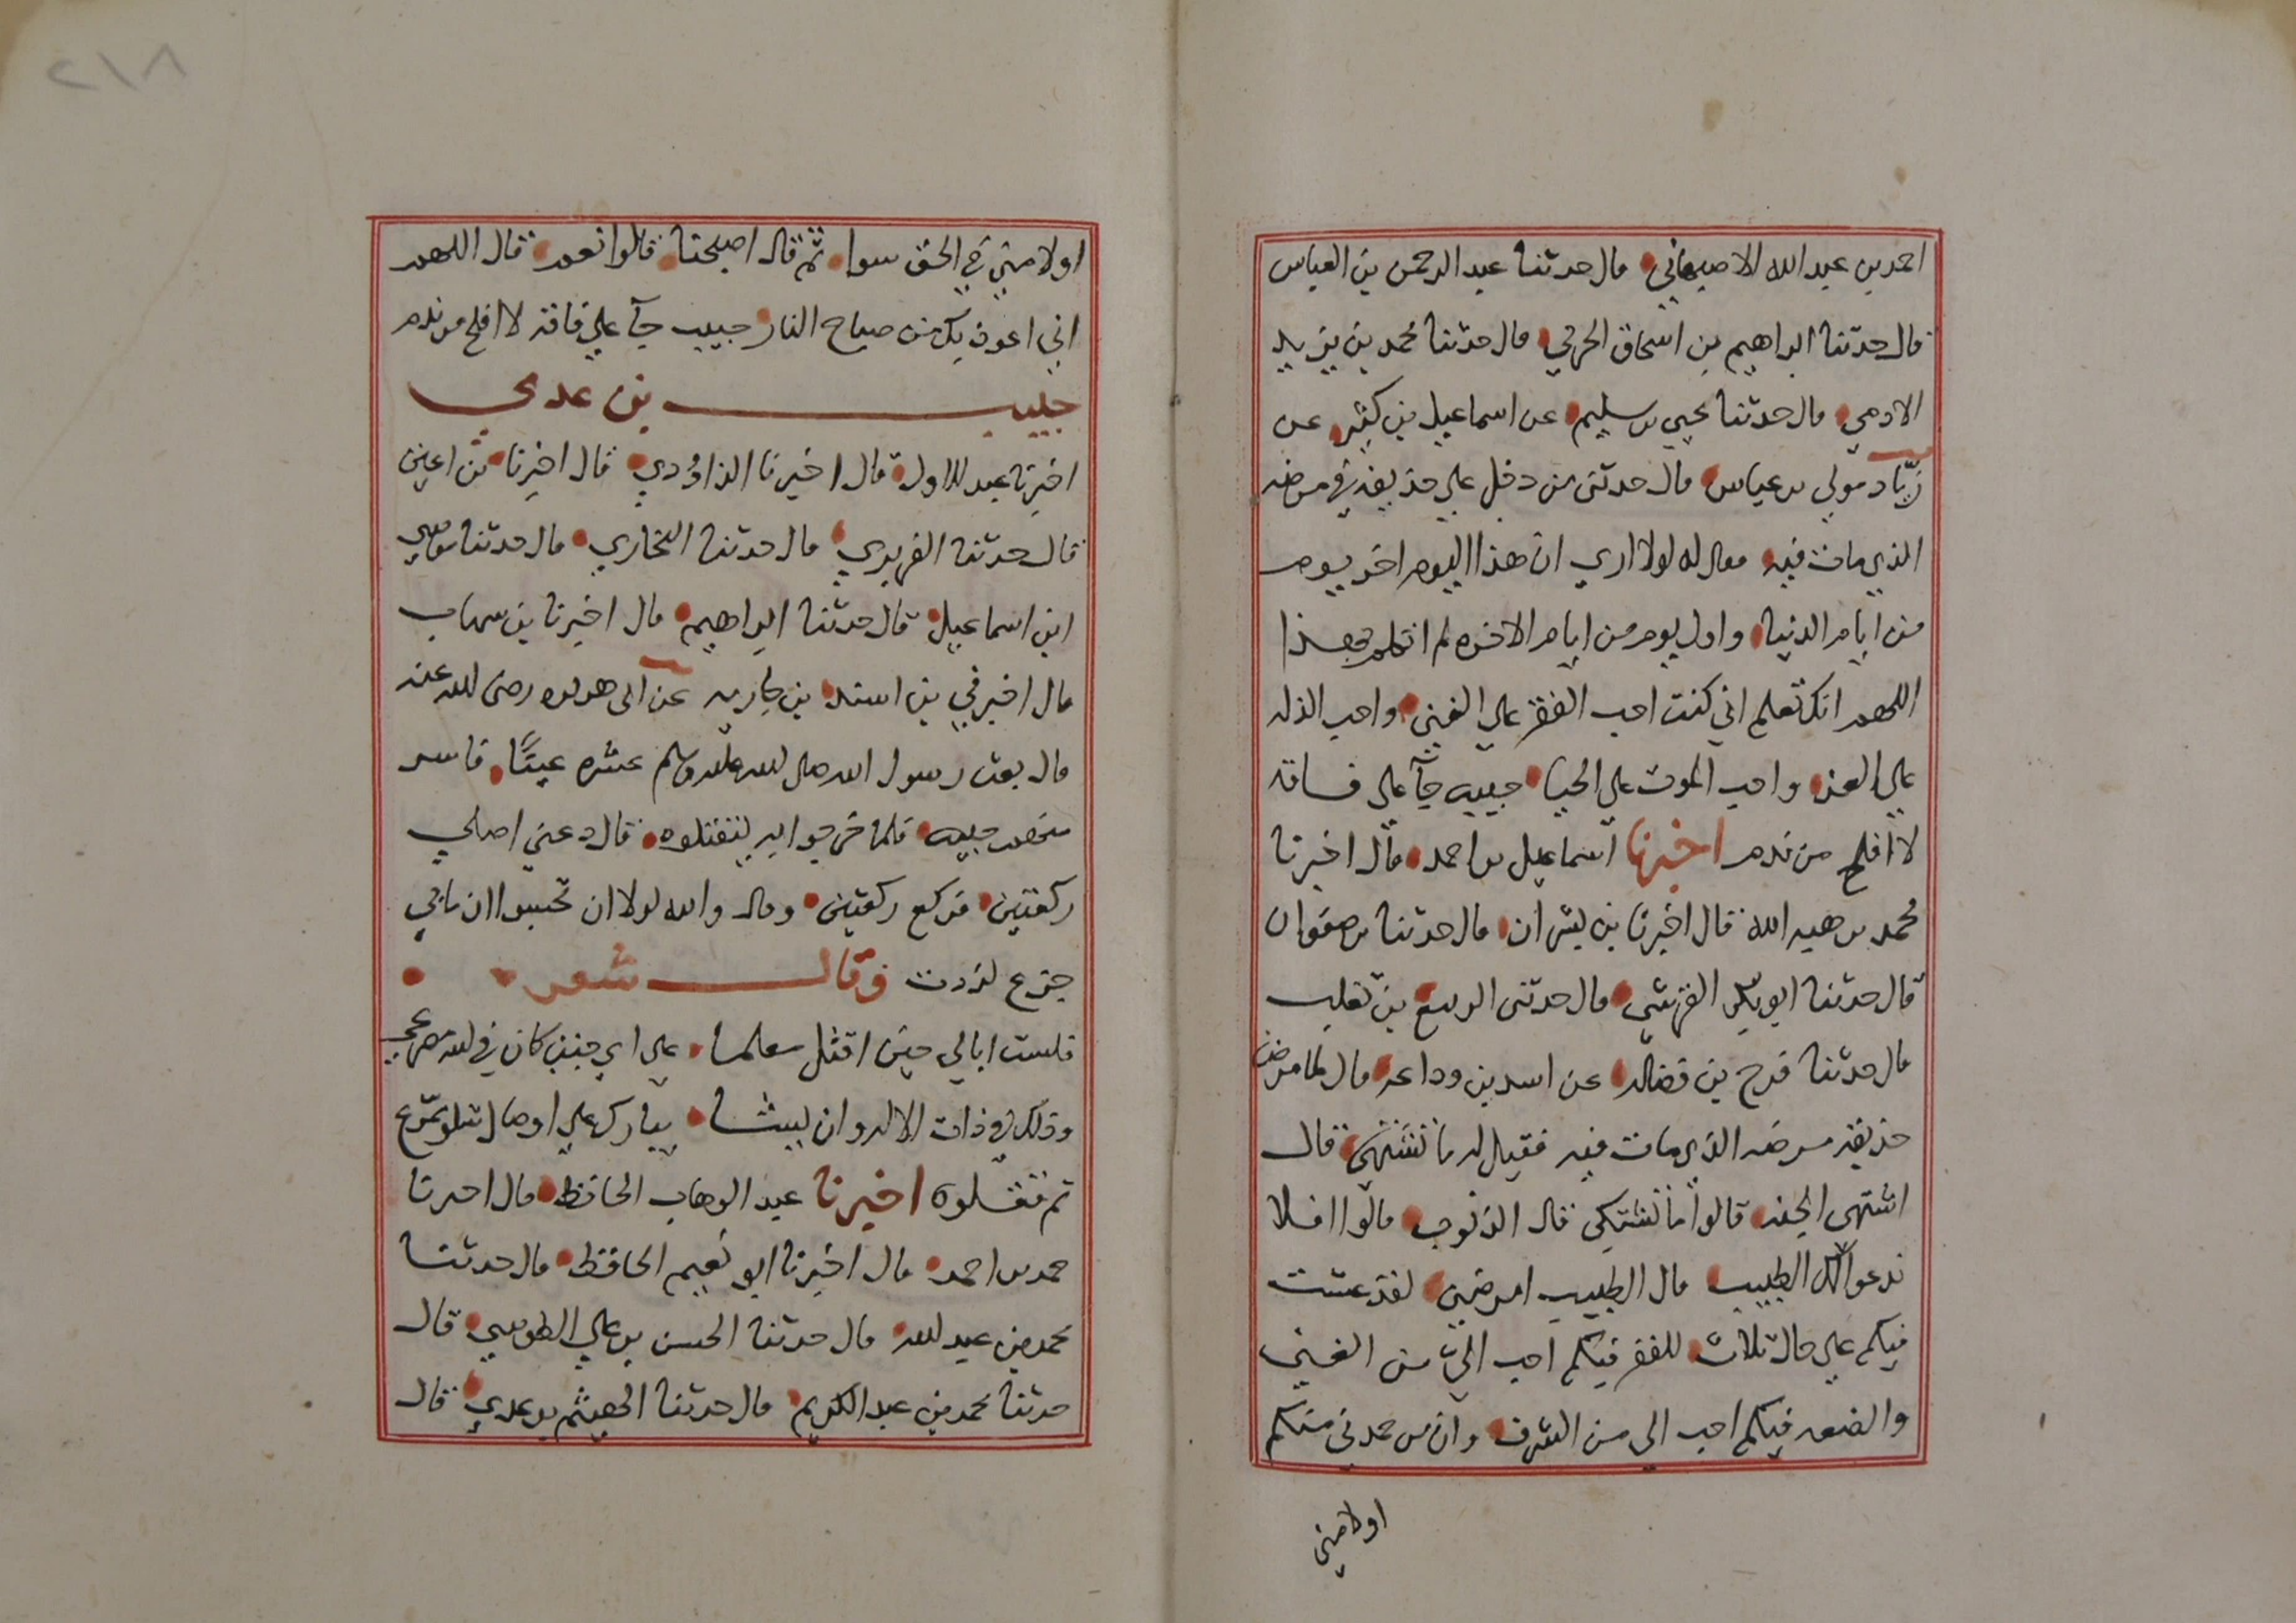 احمد بن عبد الله الاصبهاني قال حدثنا عبد الرحمن بن العباس
قال حدثنا ابراهيم بن اسحاق الحربي قال حدثنا محمد بن يزيد
الادمي قال حدثنا يحيي بن سليم عن اسماعيل بن كثير عن
زياد مولي بن عياس قال حدثني من دخل علي حذيفه في مرضه
الذي مات فيه فقال له لولا اري ان هذا اليوم اخر يوم
من ايام الدنيا واول يوم من ايام الاخره لم اتكلم بهذا
اللهم انك تعلم اني كنت احب الفقر علي الغني واحب الذله
علي العز واحب الموت علي الحيا حبيب جآ علي فاقه
لا افلح من ندم اخبرنا اسماعيل بن احمد قال اخبرنا
محمد بن هبه الله قال اخبرنا بن بشران قال حدثنا بن صفوان
قال حدثنا ابو بكر القرشي قال حدثني الربيع بن تغلب
قال حدثنا فرج بن فضاله عن اسد بن وداعه قال لما مرض
حذيفه مرضه الذي مات فيه فقيل له ما تشتهي قال
اشتهي الجنه قالوا ما تشتكي قال الذنوب قالوا افلا
ندعوا لك الطبيب قال الطبيب امرضني لقد عشت
فيكم علي حال ثلاث للفقر فيكم احب الي من الغني
والضعه فيكم احب الي من الشرف وان من حمدني منكم
اولامني
٢١٨
اولامني في الحق سوا ثم قال اصبحنا قالوا نعم قال اللهم
اني اعوذ بك من صباح النار حبيب جآ علي فاقه لا افلح من ندم
خبيب بن عدي
اخبرنا عبد الاول قال اخبرنا الداؤدي قال اخبرنا بن اعين
قال حدثنا الفربري قال حدثنا البخاري قال حدثنا موسي
ابن اسماعيل قال حدثنا ابراهيم قال اخبرنا بن سهاب
قال اخبرني بن اسيد بن جاريه عن ابي هريره رضي الله عنه
قال بعث رسول الله صلي الله عليه وسلم عشره عينًا فاسر
منهم خبيب فلما خرجوا به ليقتلوه قال دعني اصلي
ركعتين فركع ركعتين وقال والله لولا ان تحسبوا ان ما بي
جزع لزدت وقال شعر
فلست ابالي حين اقتل مسلما علي اي جنب كان في لله مصرعي
وذلك في ذات الاله وان يشا يبارك علي اوصال شلو ممزع
ثم قتلوه اخبرنا عبد الوهاب الحافظ قال اخبرنا
حمد بن احمد قال اخبرنا ابو نعيم الحافظ قال حدثنا
محمد بن عبد لله قال حدثنا الحسن بن علي الطوسي قال
حدثنا محمد بن عبد الكريم قال حدثنا الهيثم بن عدي قال